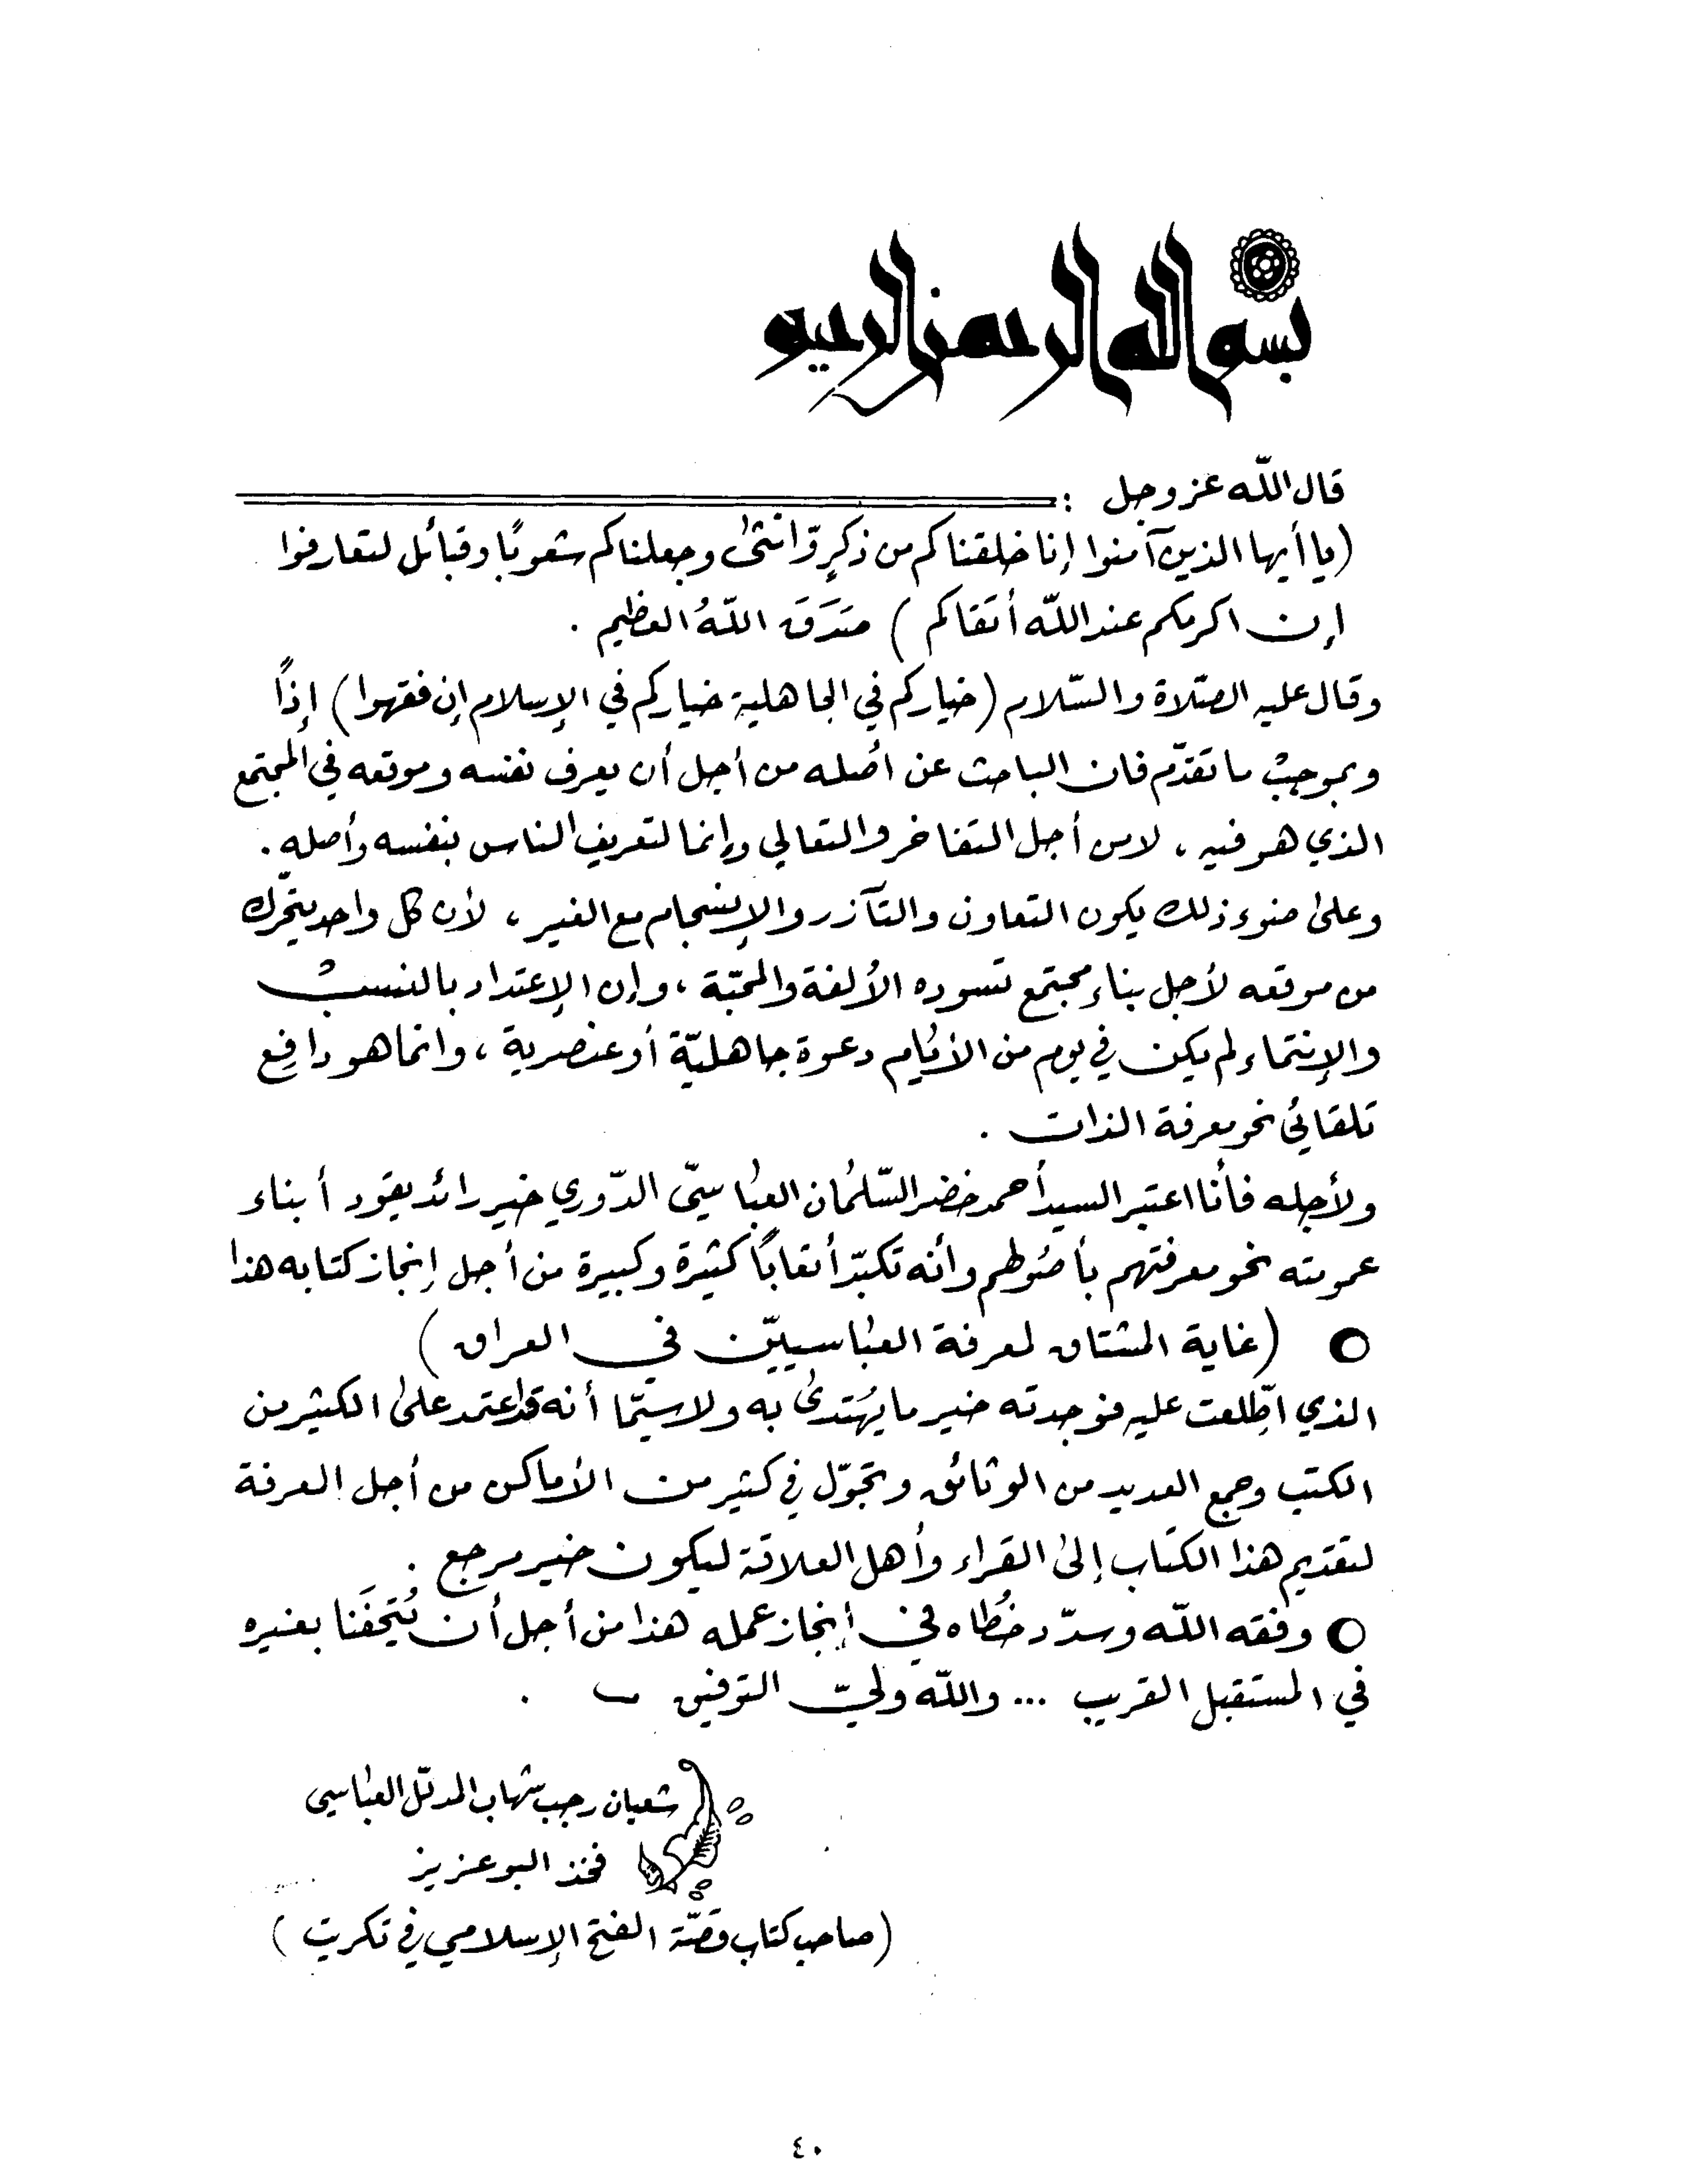 بسم الله الرحمن الرحيم
قال الله عز وجل :
(يا أيها الذين آمنوا إنا خلقناكم من ذكرٍ وّانثىٰ وجعلناكم شعوبًا وقبائل لتعارفوا
إن اكرمكم عند الله أتقاكم ) صَدَقَ اللّهُ العظيم .
وقال عليه الصّلاة والسّلام (خياركم في الجاهلية خياركم في الإسلام إن فقهوا) إذاً
وبموجب ما تقدّم فان الباحث عن أصله من أجل أن يعرف نفسه وموقعه في المجتمع
الذي هو فيه ، لا من أجل التفاخر والتعالي وإنما لتعريف الناس بنفسه وأصله .
وعلىٰ ضوء ذلك يكون التعاون والتآزر والإنسجام مع الغير ، لأن كل واحد يتحّرك
من موقعه لأجل بناء مجتمع تسوده الألفة والمحبّة ، وإن الإعتداد بالنسب
والإنتماء لم يكن في يوم من الأيام دعوة جاهليّة أو عنصرية ، وانما هو دافع
تلقائي نحو معرفة الذات .
ولأجله فأنا اعتبر السيد أحمد خضر السّلمان العباسيّ الدّوري خير رائد يقود أبناء
عمومته نحو معرفتهم بأصولهم وأنه تكبّد أتعابًا كثيرة وكبيرة من أجل إنجاز كتابه هذا
(غاية المشتاق لمعرفة العباسييّن في العراق )
الذي اطّلعت عليه فوجدته خير ما يهُتدىٰ به ولا سيّما أنه قد اعتمد علىٰ الكثير من
الكتب وجمع العديد من الوثائق وتجوّل في كثير من الأماكن من أجل العرفة
لتقديم هذا الكتاب إلىٰ القراء وأهل العلاقة ليكون خير مرجع .
وفقه اللّه وسدّد خُطاه في إنجاز عمله هذا من أجل أن يُتحِفَنا بغيره
في المستقبل القريب ... واللّه وليّ التوفيق .
شعبان رجب شهاب المدلّل العباسي
فخذ البو عزيز
(صاحب كتاب قصّة الفتح الإسلامي في تكريت )
٤٠